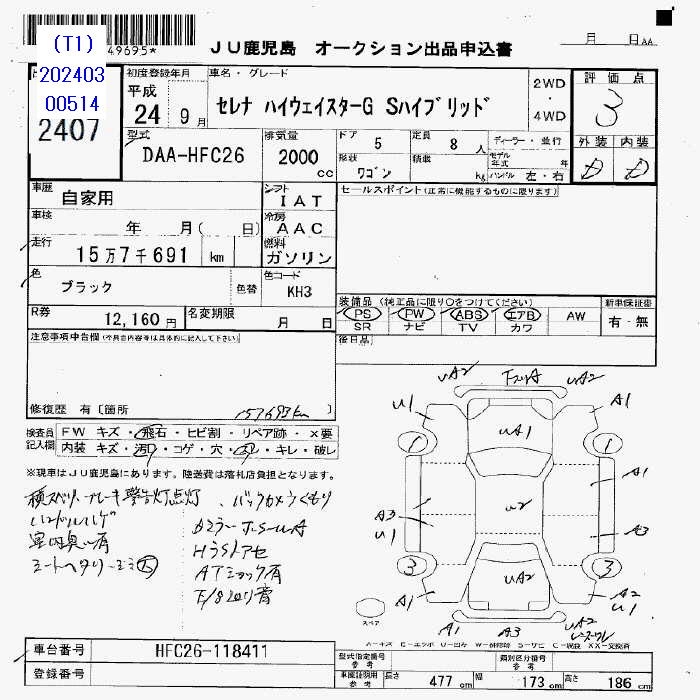 49695*
(T1)
202403
00514
2407
JU鹿児島 オークション出品申込書
月 日 AA
初度登録年月
平成
24 9月
車名・グレード
セレナ ハイウェイスターG Sハイブリッド
2WD
・
4WD
評価点
3
外装 内装
D D
型式
DAA-HFC26
排気量
2000
cc
ドア 5
定員 8 人
ディーラー・並行
形状 ワゴン
積載 kg
モデル年式 年
ハンドル 左・右
車歴
自家用
シフト
IAT
セールスポイント(正常に機能するものに限ります)
車検
年 月( 日)
冷房
AAC
走行
15万7千691 km
燃料
ガソリン
色
ブラック
色替
色コード
KH3
装備品(純正品に限り○をつけてください)
新車保証書
PS・PW・ABS・エアB AW
有・無
SR ナビ TV カワ
R券
12,160円
名変期限
月 日
注意事項申告欄(不具合内容等は具体的に記入して下さい)
後日品
修復歴 有〔箇所 〕
157693km
検査員記入欄
FW キズ・飛石・ヒビ割・リペア跡・×要
内装 キズ・汚れ・コゲ・穴・スレ・キレ・破レ
※現車はJU鹿児島にあります。陸送費は落札店負担となります。
横スベリ・ブレーキ警告灯点灯、バックカメラくもり
ハンドルハゲ
室内臭い有
シートヘタリ・シミ大
ATショック有
UA2 UA2
U1 A1
UA1
1 1
A1
A3
U1
U2
A3
3 3
UA2
A1
A2
U1
スペア
A1 A3 UA2
A-キズ E-エクボ U-凹ケ W-補修跡 S-サビ C-腐食 XX-交換済
車台番号
HFC26-118411
登録番号
型式指定番号
参考
類別区分番号
参考
車庫証明用
参考
長さ 477cm
幅 173cm
高さ 186cm